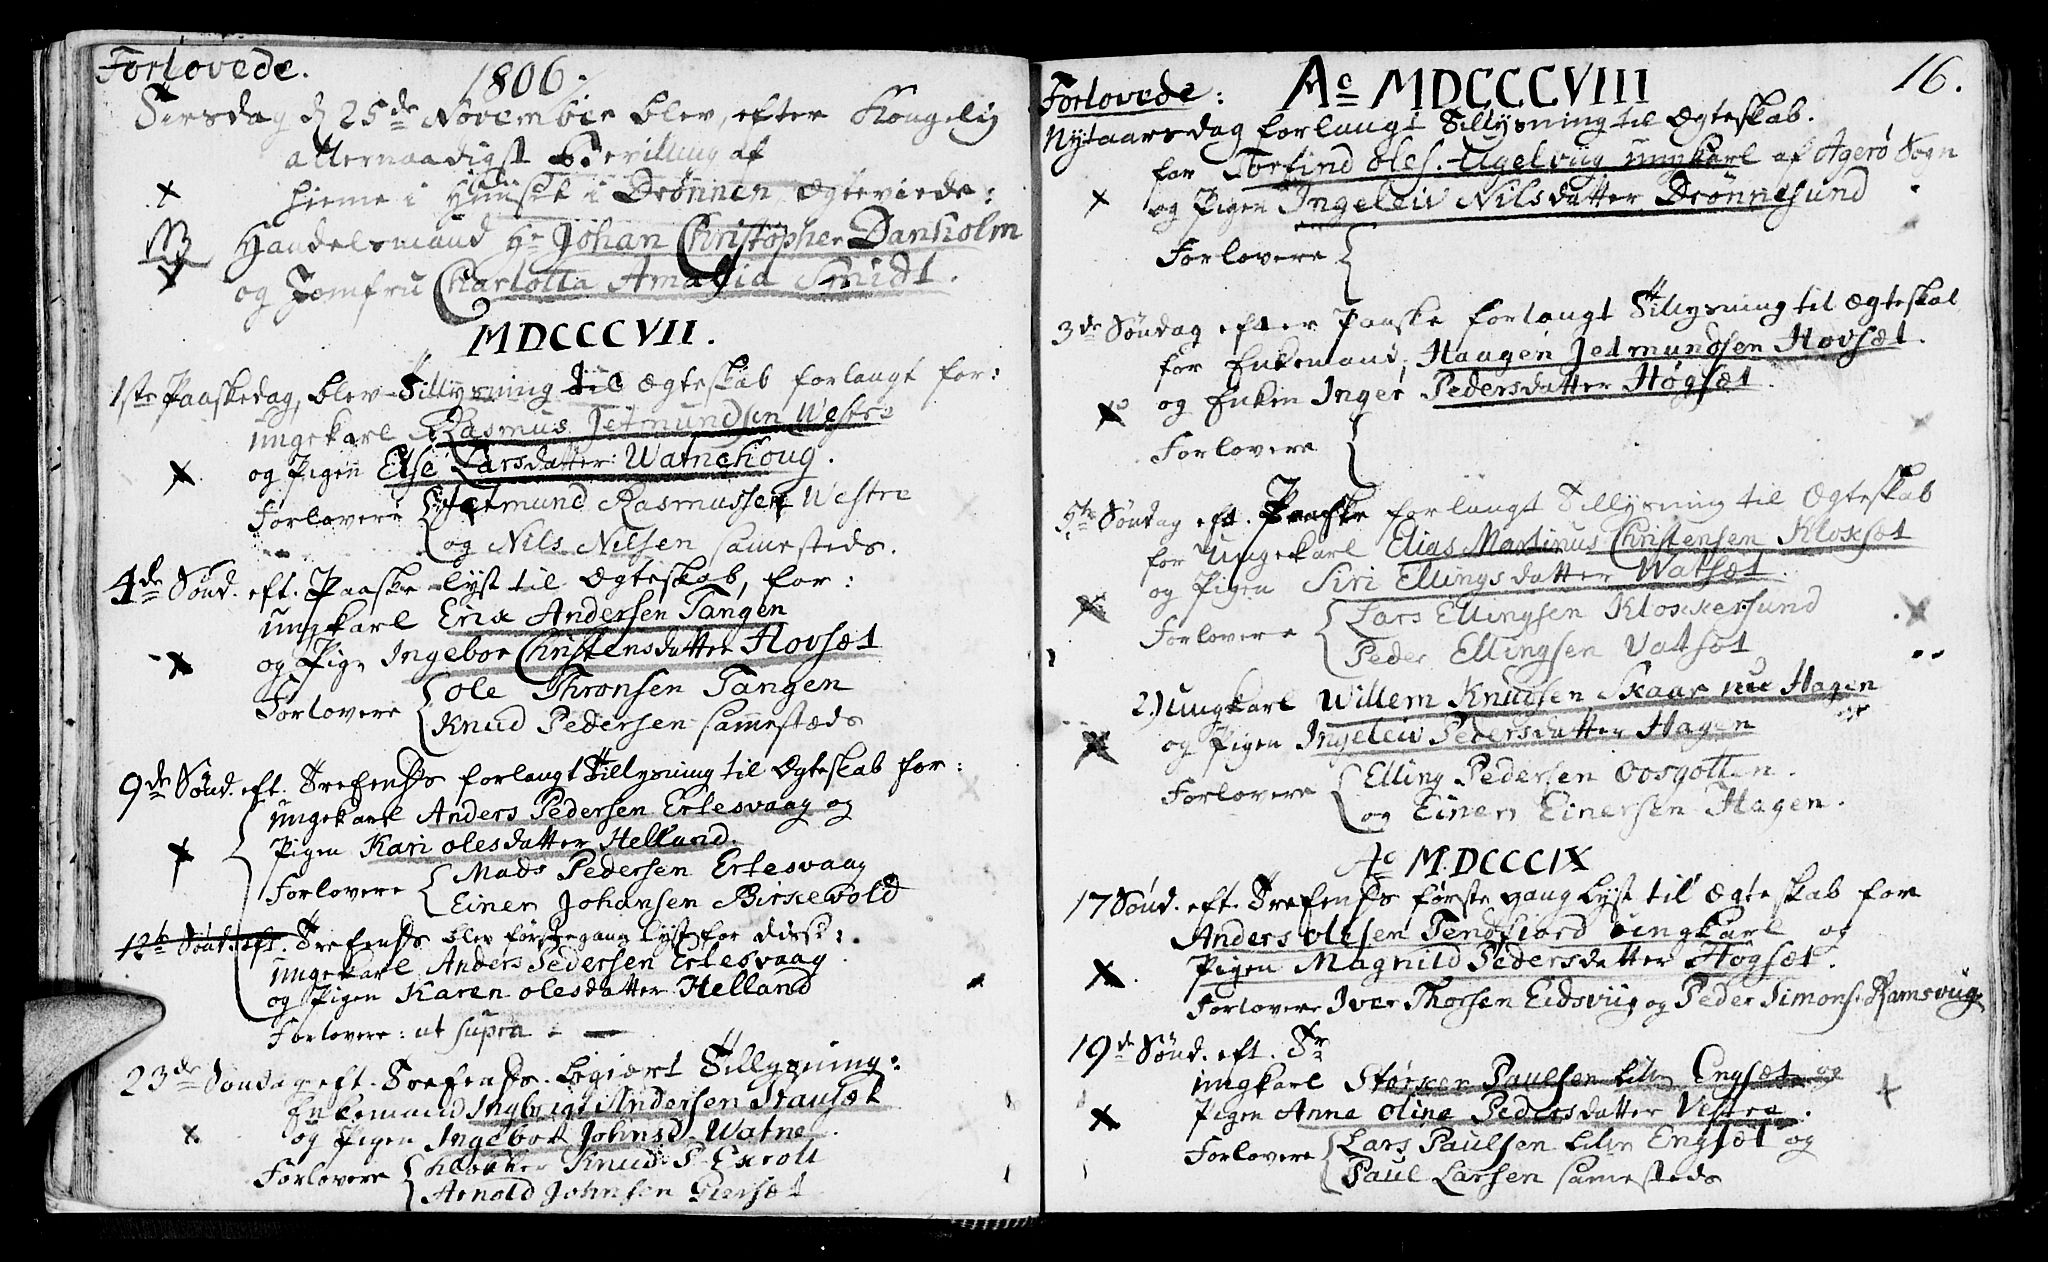 Forlovede.
1806.
Tirsdag d 25de November blev, efter Kongelig
allernaadigst Bevilling af
hieme i Huuset i Drönnen, Ægteviede:
Handelsmand Hr Johan Christopher Danholm
og Jomfru Charlotta Amalia Smidt.
MDCCCVII.
1ste Paaskedag, blev Tillysning til Ægteskab forlangt for:
ungekarl Rasmus Jetmundsen Westre
og Pigen Else Larsdatter Watnehoug.
Forlovere Jetmund Rasmussen Westre
og Nils Nilsen sammesteds.
4de Sönd. eft. Paaske lyst til Ægteskab, for:
ungkarl Erix Andersen Tangen
og Pige Ingebor Christensdatter Hovsæt
Forlovere Ole Thronsen Tangen
Knud Pedersen sammestæds
9de Sönd. eft. Trefts forlangt Tillysning til Ægteskab for:
ungekarl Anders Pedersen Ertesvaag og
Pigen Kari Olesdatter Helland.
Forlovere Mads Pedersen Ertesvaag
Einer Johansen Birkevold
12te Sönd. eft. Trefts blev förstegang lyst for disse:
ungekarl Anders Pedersen Ertesvaag
og Pigen Karen Olesdatter Helland
Forlovere: ut supra
23de Söndag eft. Trefts. begiert Tillysning:
Enkemand Ingbrigt Andersen
og Pigen Ingebor Johnsd. Watne
Forlovere Klokker Knud P.
Arnold Johnsen
16.
Forlovede:
Ao MDCCCVIII
Nytaarsdag forlangt Tillysning til Ægteskab.
for Torfind Oles. Ugelviig ungkarl af Agerö Sogn
og Pigen Ingeleiv Nilsdatter Drönnesund
Forlovere
3de Söndag efter Paaske forlangt Tillysning til Ægteskab
for Enkemand, Haagen Jetmundsen Hovsæt.
og Enken Inger Pedersdatter Högsæt.
Forlovere
5te Söndag eft. Paaske forlangt Tillysning til Ægteskab
for Ungekarl Elias Martinus Christensen Kloxsæt
og Pigen Siri Ellingsdatter Watsæt.
Forlovere Lars Ellingsen Kloxkersund
Peder Ellingsen Vatsöt
2.) Ungkarl Willem Knudsen Skaar nu Hagen
og Pigen Ingeleiv Pedersdatter Hagen
Forlovere Elling Pedersen Oosgotten.
og Einer Einersen Hagen.
Ao MDCCCIX
17 Sönd. eft. Trefts förste gang lyst til Ægteskab for
Anders Olesen Tendfiord ungkarl og
Pigen Magnild Pedersdatter Högsæt.
Forlovere Iver Thorsen Eidsviig og Peder Simons. Ramsviig
19de Sönd. eft. Tr
ungkarl Störker Paulsen Lille Engsæt og
Pigen Anne Oline Pedersdatter Vestre.
Forlovere Lars Paulsen Lille Engsæt og
Paul Larsen sammesteds